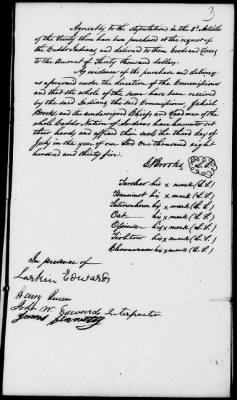 3
Agreeably to the stipulations in the 3d Article
of the Treaty there have been purchased at the request of
the Caddo Indians, and delivered to them Goods and Horses
to the amount of thirty thousand dollars.
As evidence of the purchase and delivery
as aforesaid under the direction of the Commissioner
and that the whole of the same have been received
by the said Indians, the said Commissioner, Jehiel
Brooks and the undersigned Chiefs and Head men of the
whole Caddo Nation of Indians have hereunto set
their hands and affixed their seals the third day of
July in the year of our Lord one thousand eight
hundred and thirty five.
J. Brooks (L.S.)
Tarshar his x mark (L.S.)
Tsauninot his x mark (L.S.)
his x mark (L.S.)
Oat his x mark (L.S.)
Ossinse his x mark (L.S.)
Tiohtow his x mark (L.S.)
Chowawanow his x mark (L.S.)
In presence of
Larkin Edwards
Henry Queen
John W. Edwards Interpreter
James Finnerty